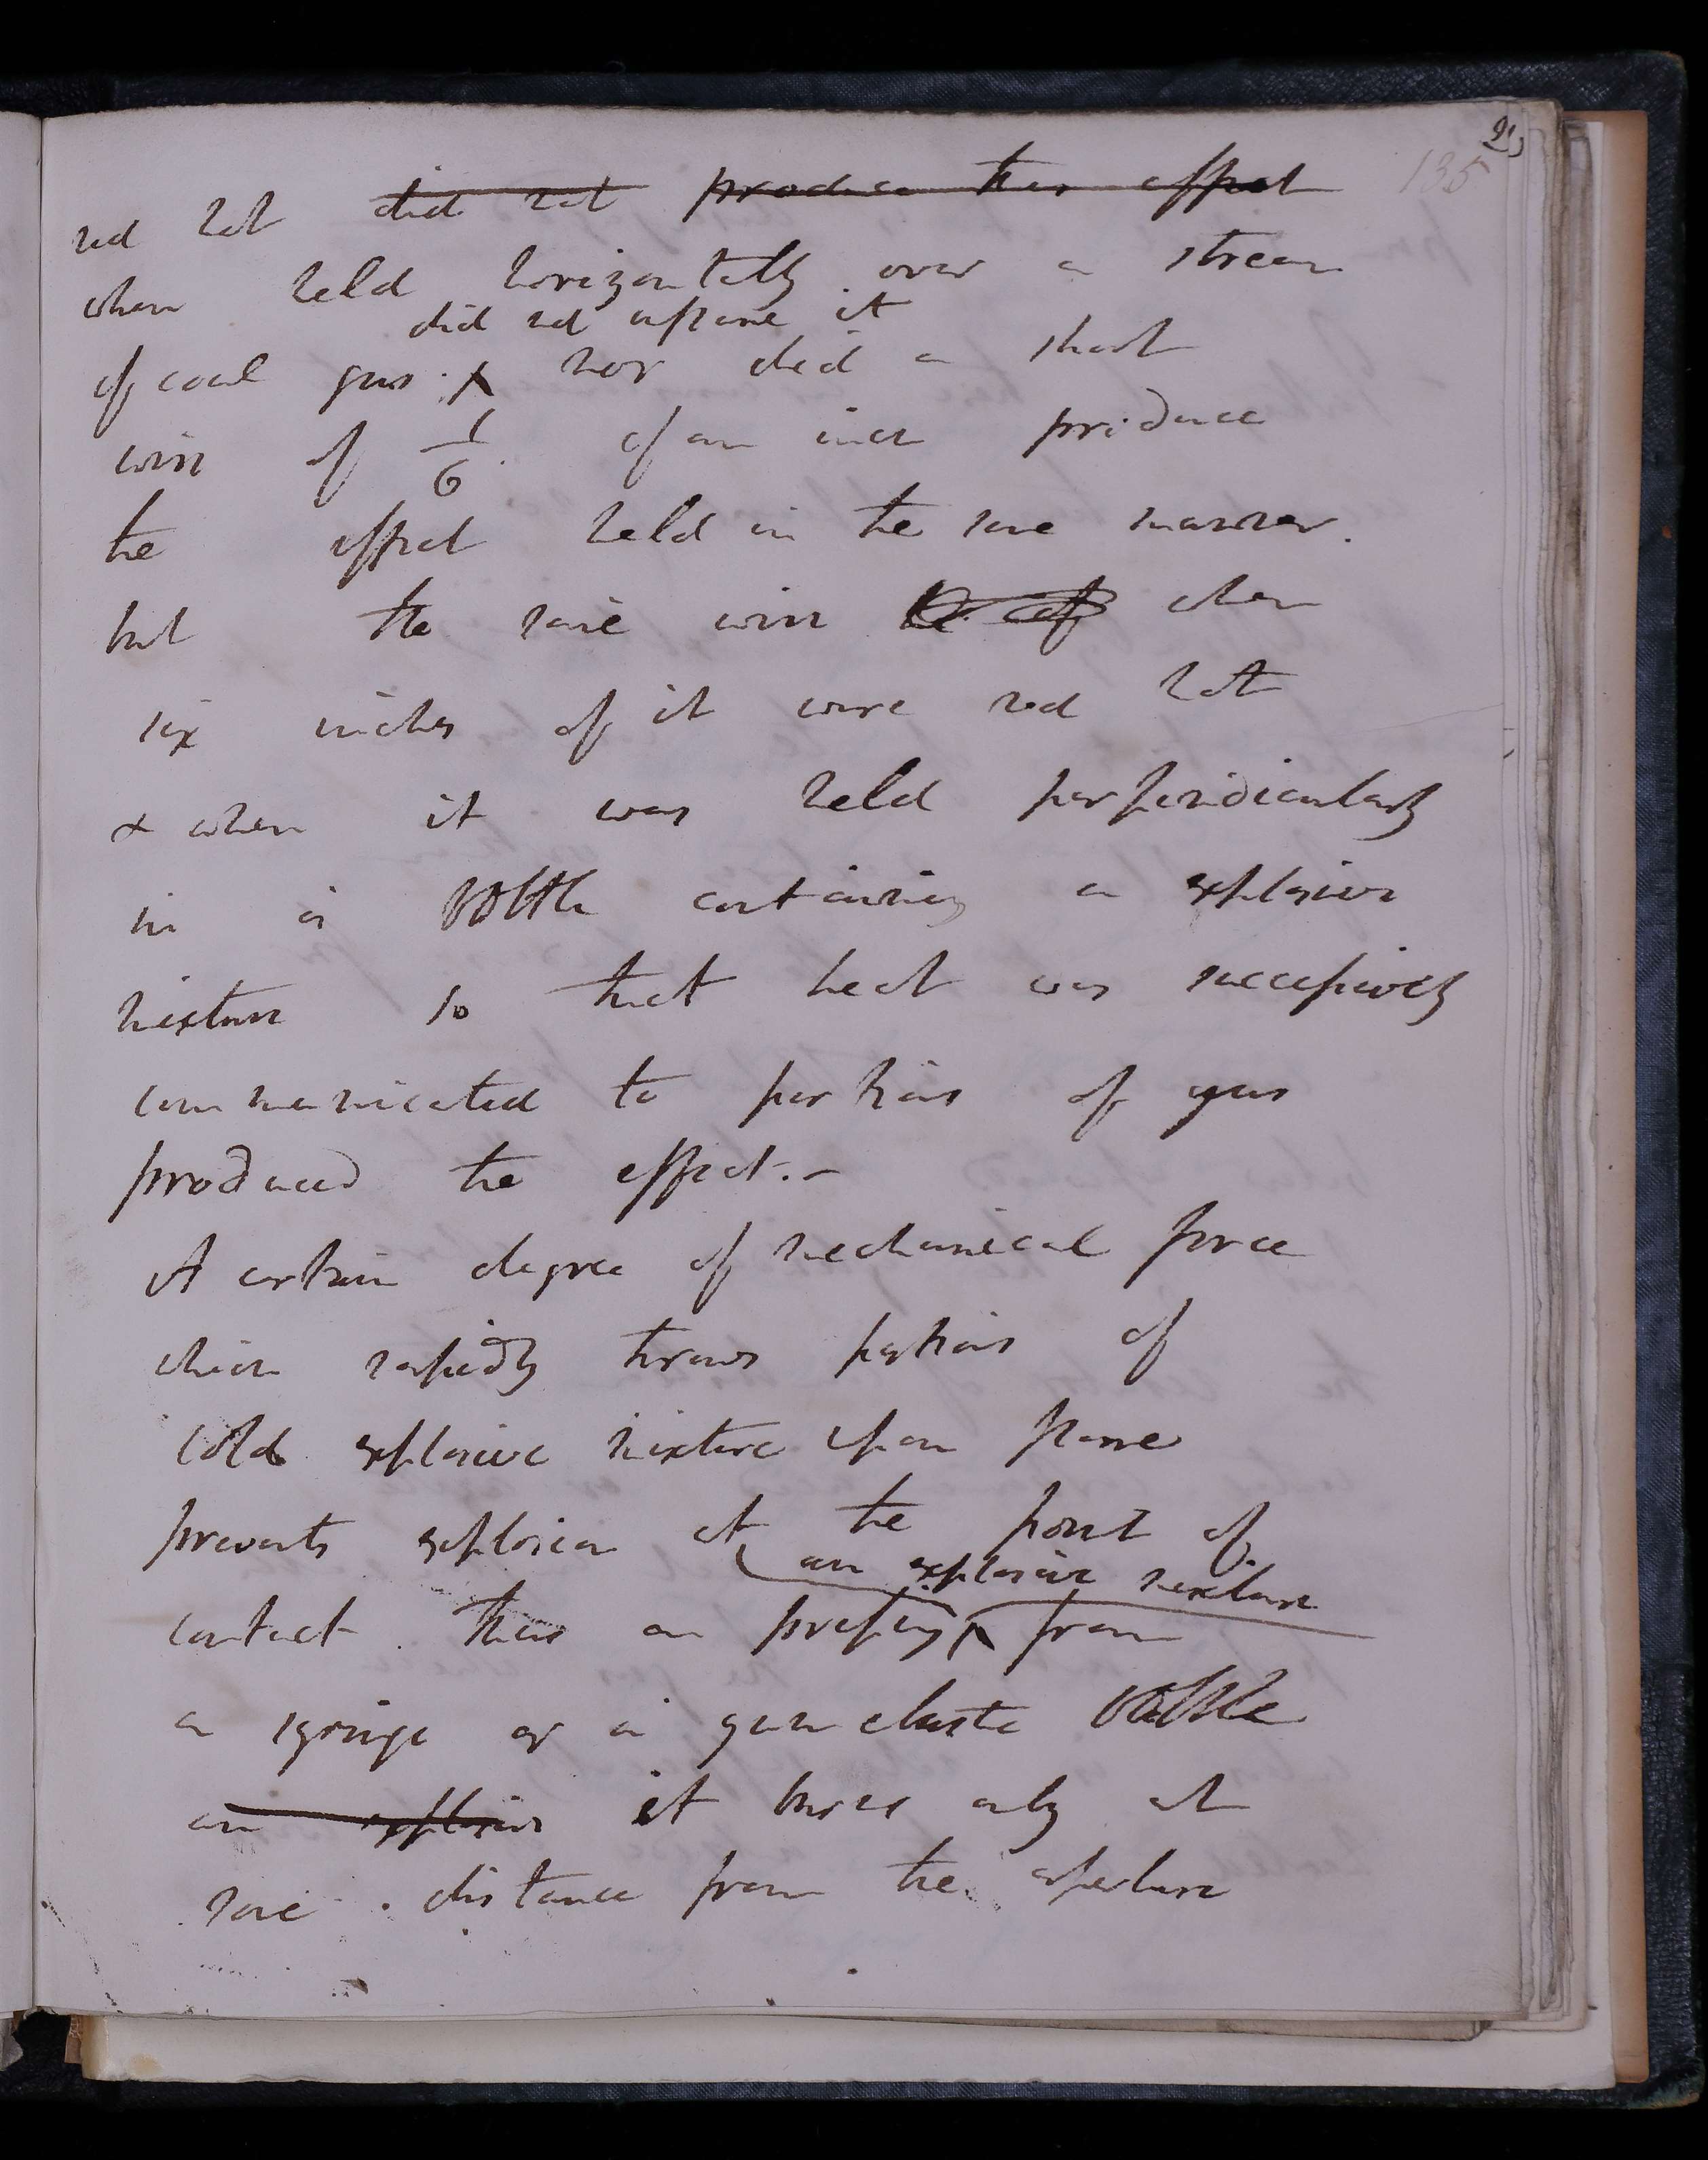 21
135
red hot did not produce this effect
when held horizontally over a stream
did not inflame it
of coal gas nor did a short
wire of 1/6 of an inch produce
the effect held in the same manner.
but the same wire when
six inches of it were red hot
& when it was held perpendicularly
in a bottle containing an explosive
mixture so that heat was successively
communicated to portions of gas
produced the effect. -
A certain degree of mechanical force
which rapidly throws portions of
cold explosive mixture upon flame
prevents explosion at the point of
an explosive mixture
contact. Thus on pressing from
a syringe or a gum elastic bottle
an explosive it burns only at
some distance from the aperture